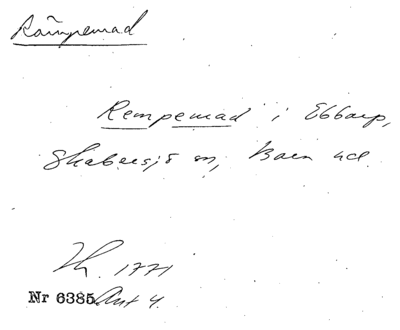 Rämpemad
Rempemad i Ebbarp,
Skabersjö sn, Bara hd.
Lh. 1771
Nr 6385 Ant 4.